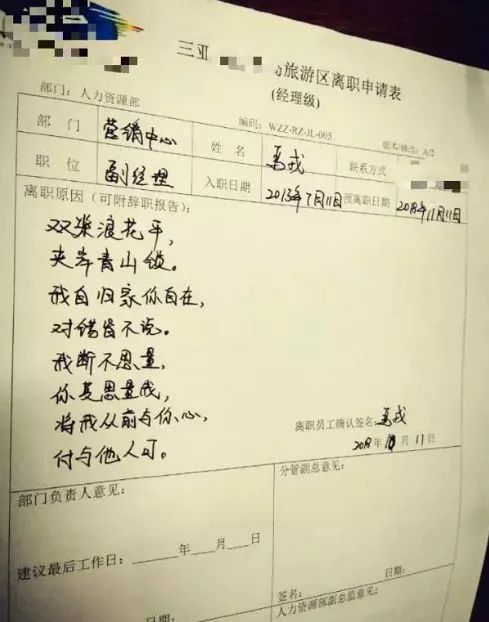 三亚 旅游区离职申请表
(经理级)
部门：人力资源部 编码：WZZ-RZ-JL-005 版本/修改：A/2
部 门 营销中心 姓 名 联系方式
职 位 副经理 入职日期 2013年7月11日 预离职日期 2018年11月11日
离职原因（可附辞职报告）：
双桨浪花平，
夹岸青山锁。
我自归家你自在，
对错皆不说。
我断不思量，
你莫思量我，
将我从前与你心，
付与他人可。
离职员工确认签名：
2018年10月11日
部门负责人意见： 分管副总意见：
建议最后工作日：______年____月____日
签名： 日期：
日期： 人力资源部副总监意见：